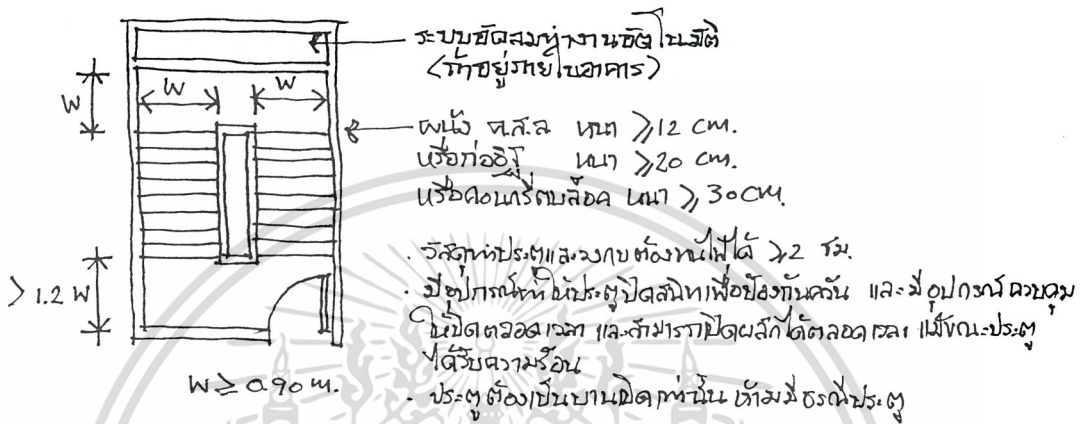 ระบบอัดลมทำงานอัตโนมัติ
(ถ้าอยู่ภายในอาคาร)
W
W
W
ผนัง ค.ส.ล หนา ⩾12 cm.
หรือก่ออิฐ หนา ⩾20 cm.
หรือคอนกรีตบล็อค หนา ⩾30 cm.
. วัสดุทำประตูและวงกบต้องทนไฟได้ ⩾2 ชม.
. มีอุปกรณ์ทำให้ประตูปิดสนิทเพื่อป้องกันควัน และมีอุปกรณ์ควบคุม
ให้ปิดตลอดเวลา และสามารถเปิดผลักได้ตลอดเวลา แม้ขณะประตู
ได้รับความร้อน
- ประตูต้องเป็นบานเปิดเท่านั้น ห้ามมีธรณีประตู
> 1.2 W
W ≥ 0.90 m.